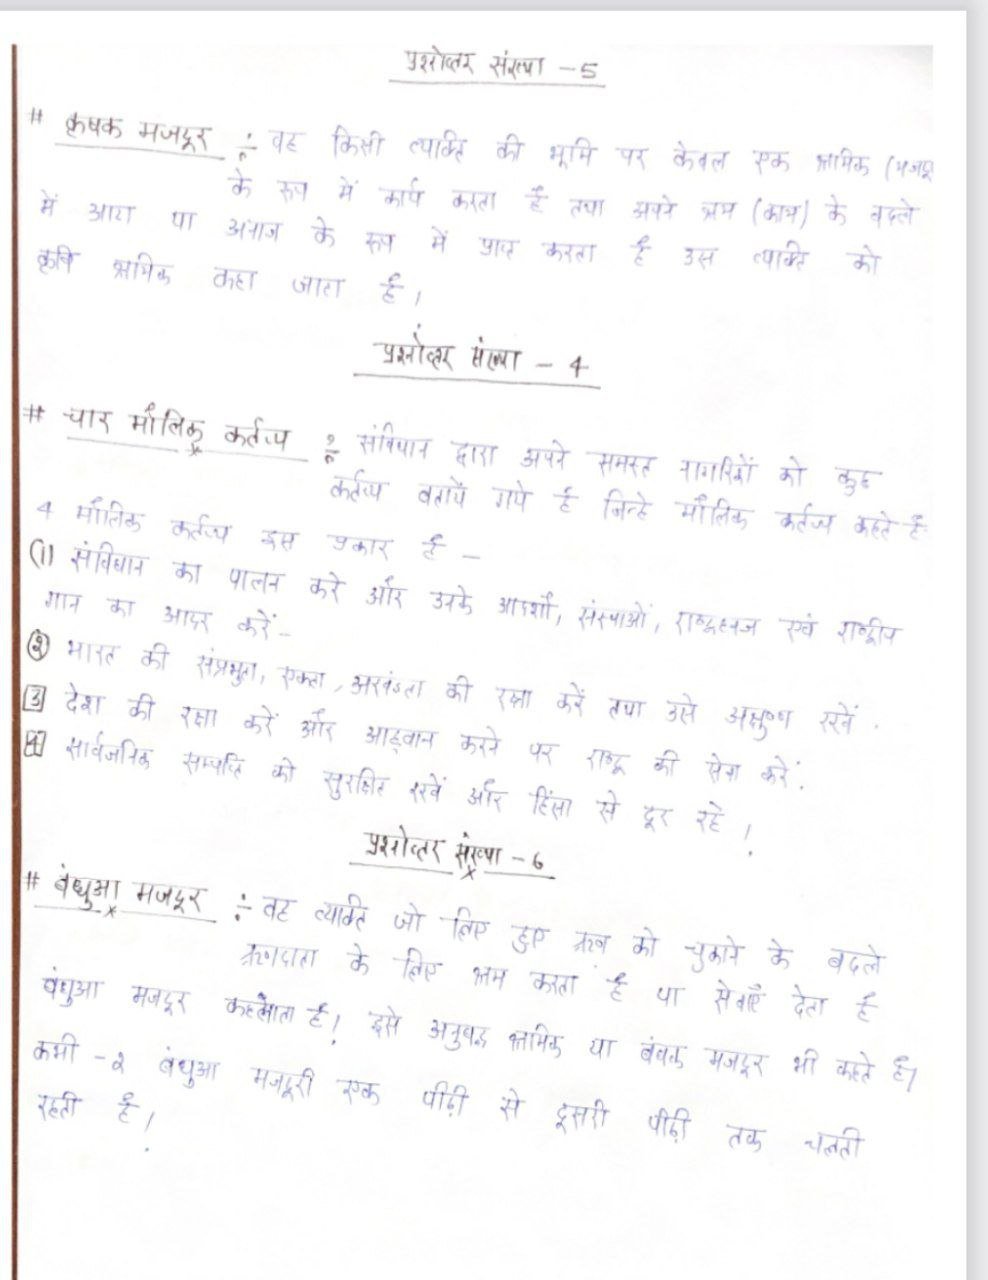 प्रश्नोत्तर संख्या - 5
# कृषक मजदूर ÷ वह किसी व्यक्ति की भूमि पर केवल एक श्रमिक (मजदू
के रूप में कार्य करता है तथा अपने श्रम (काम) के बदले
में आय या अनाज के रूप में प्राप्त करता है उस व्यक्ति को
कृषि श्रमिक कहा जाता है।
प्रश्नोत्तर संख्या - 4
# चार मौलिक कर्तव्य ÷ संविधान द्वारा अपने समस्त नागरिकों को कुछ
कर्तव्य बतायें गये है जिन्हे मौलिक कर्तव्य कहते है
4 मौलिक कर्तव्य इस प्रकार है -
(1) संविधान का पालन करे और उनके आदर्शों, संस्थाओं, राष्ट्रध्वज एवं राष्ट्रीय
गान का आदर करें-
(2) भारत की संप्रभुता, एकता, अखंडता की रक्षा करें तथा उसे अक्षुण्ण रखें.
[3] देश की रक्षा करें और आह्वान करने पर राष्ट्र की सेवा करें.
[4] सार्वजनिक सम्पत्ति को सुरक्षित रखें और हिंसा से दूर रहे।
प्रश्नोत्तर संख्या - 6
# बंधुआ मजदूर ÷ वह व्यक्ति जो लिए हुए ऋण को चुकाने के बदले
ऋणदाता के लिए श्रम करता है या सेवाएँ देता है
बंधुआ मजदूर कहलाता है। इसे अनुबद्ध श्रमिक या बंधक मजदूर भी कहते है।
कभी -2 बंधुआ मजदूरी एक पीढ़ी से दूसरी पीढ़ी तक चलती
रहती है।